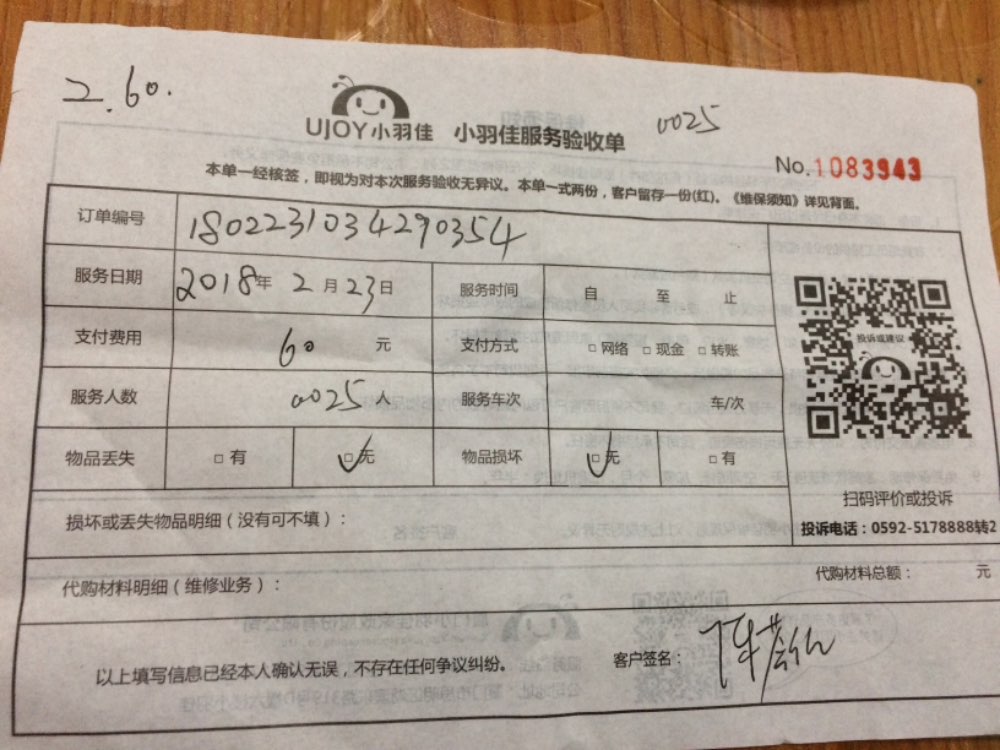 2.60.
UJOY小羽佳 小羽佳服务验收单 0025
No.1083943
本单一经核签，即视为对本次服务验收无异议。本单一式两份，客户留存一份(红)。《维保须知》详见背面。
订单编号 1802231034290354
服务日期 2018年 2月23日 服务时间 自 至 止
支付费用 60 元 支付方式 □网络 □现金 □转账
投诉或建议
服务人数 0025人 服务车次 车/次
物品丢失 □有 □无 物品损坏 □无 □有
扫码评价或投诉
损坏或丢失物品明细（没有可不填）：
投诉电话：0592-5178888转2
代购材料明细（维修业务）： 代购材料总额： 元
以上填写信息已经本人确认无误，不存在任何争议纠纷。 客户签名：